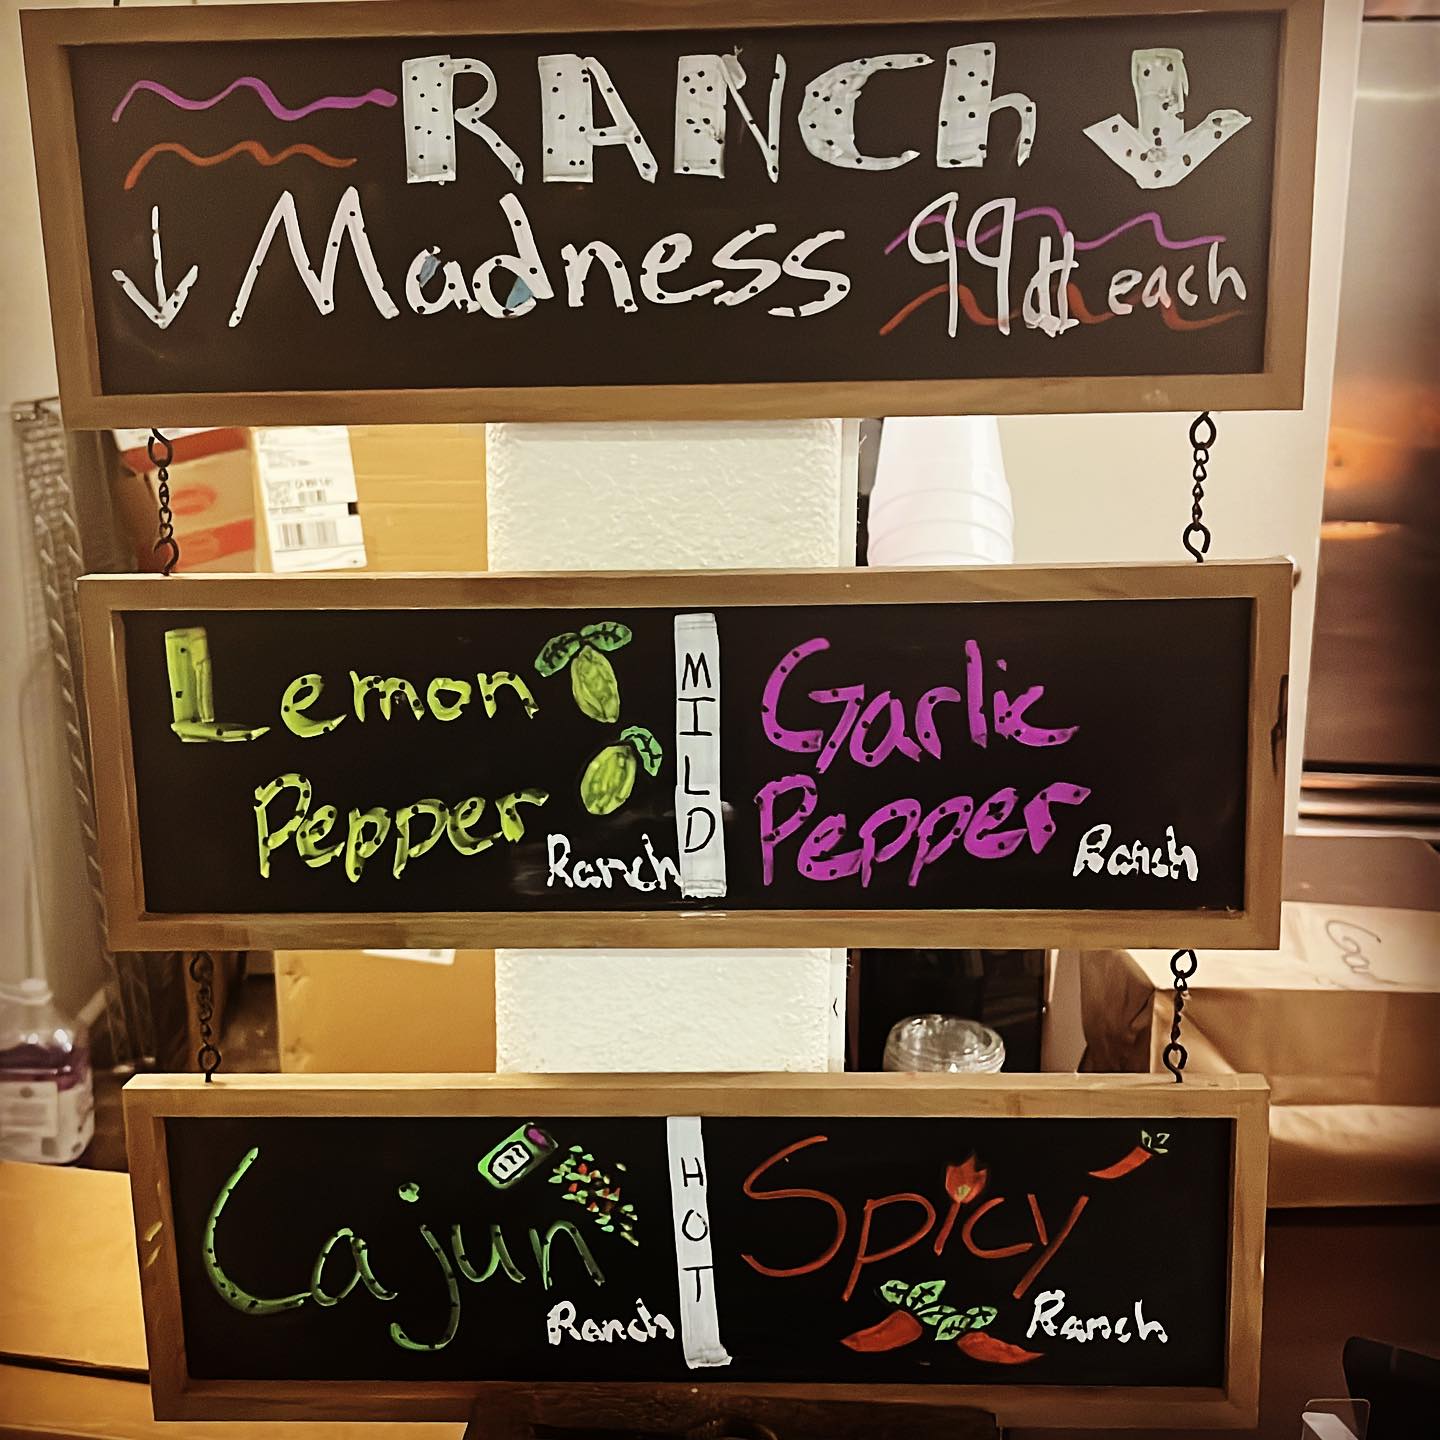 RANCh
Madness 99¢ each
Lemon
Pepper
Ranch
MILD
Garlic
Pepper
Ranch
Cajun
Ranch
HOT
Spicy
Ranch